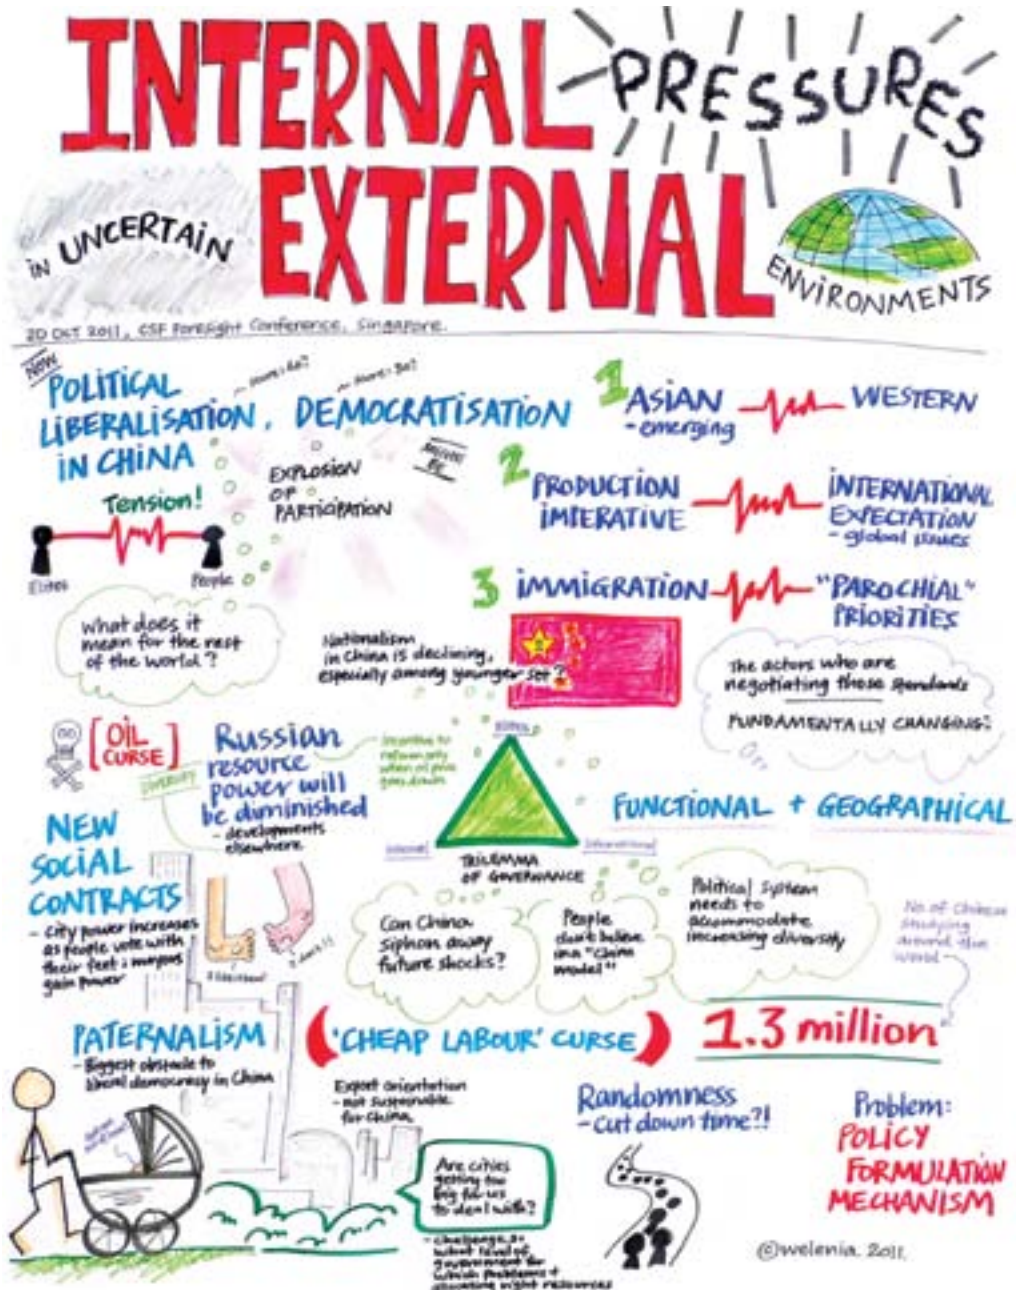 INTERNAL
PRESSURES
EXTERNAL
IN UNCERTAIN
ENVIRONMENTS
20 OCT 2011, CSF Foresight Conference, Singapore.
NOW
POLITICAL
LIBERALISATION, DEMOCRATISATION
IN CHINA
Tension!
Elites
People
EXPLOSION
OF
PARTICIPATION
What does it
mean for the rest
of the world?
1 ASIAN
- emerging
WESTERN
2 PRODUCTION
IMPERATIVE
INTERNATIONAL
EXPECTATION
- global issues
3 IMMIGRATION
"PAROCHIAL"
PRIORITIES
Nationalism
in China is declining,
especially among younger set?
The actors who are
negotiating these standards
FUNDAMENTALLY CHANGING!
[OIL
CURSE]
Diversity
Russian
resource
power will
be diminished
- developments
elsewhere
Incentive to
reform only
when oil price
goes down
FUNCTIONAL + GEOGRAPHICAL
TRILEMMA
OF GOVERNANCE
NEW
SOCIAL
CONTRACTS
- City power increases
as people vote with
their feet; mayors
gain power
Can China
siphon away
future shocks?
People
don't believe
in a "China
model"
Political System
needs to
accommodate
increasing diversity
No. of Chinese
studying
around the
world
1.3 million
PATERNALISM
- Biggest obstacle to
liberal democracy in China
('CHEAP LABOUR' CURSE)
Export orientation
- not sustainable
for China
Randomness
- Cut down time?!
Problem:
POLICY
FORMULATION
MECHANISM
Are cities
getting too
big for us
to deal with?
- challenge is
what level of
government for
which problems +
right resources
©welenia. 2011.